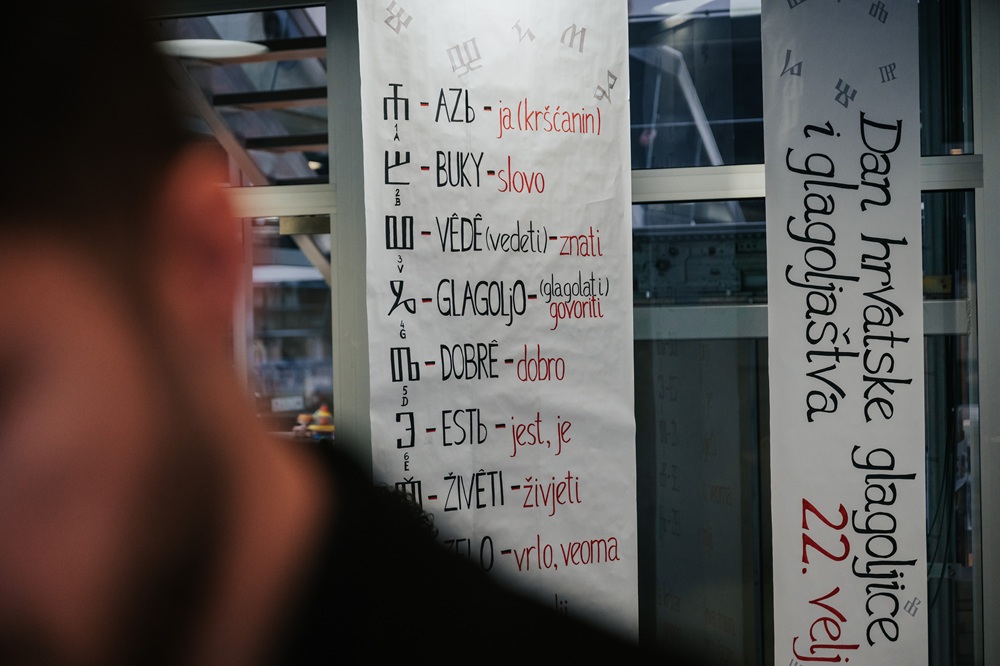 Ⰰ - AZb - ja (kršćanin)
1
A
Ⰱ - BUKY - slovo
2
B
Ⰲ - VÊDÊ (vedeti) - znati
3
V
Ⰳ - GLAGOLjO - (glagolati) govoriti
4
G
Ⰴ - DOBRÊ - dobro
5
D
Ⰵ - ESTb - jest, je
6
E
Ⰶ - ŽIVÊTI - živjeti
- vrlo, veoma
Dan hrvatske glagoljice
i glagoljaštva 22. velj